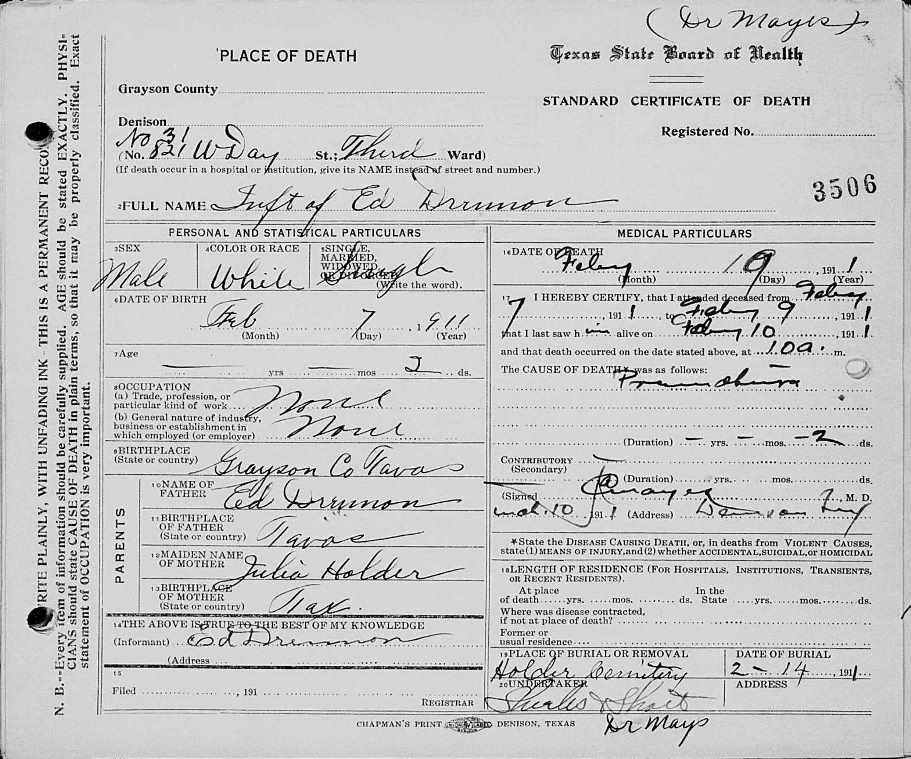 (Dr Mayes)
PLACE OF DEATH
Texas State Board of Health
Grayson County
STANDARD CERTIFICATE OF DEATH
Denison
Registered No.
No 31
(No. 821 W Day St.; Third Ward)
(If death occur in a hospital or institution, give its NAME instead of street and number.)
3506
2 FULL NAME Inft of Ed Drennon
PERSONAL AND STATISTICAL PARTICULARS
3 SEX Male
4 COLOR OR RACE White
5 SINGLE, MARRIED, WIDOWED OR DIVORCED Single
(Write the word).
6 DATE OF BIRTH
Feb 7, 1911
(Month) (Day) (Year)
7 Age
yrs mos 2 ds.
8 OCCUPATION
(a) Trade, profession, or
particular kind of work None
(b) General nature of industry,
business or establishment in
which employed (or employer) None
9 BIRTHPLACE
(State or country) Grayson Co Texas
PARENTS
10 NAME OF
FATHER Ed Drennon
11 BIRTHPLACE
OF FATHER
(State or country) Texas
12 MAIDEN NAME
OF MOTHER Julia Holder
13 BIRTHPLACE
OF MOTHER
(State or country) Tex.
14 THE ABOVE IS TRUE TO THE BEST OF MY KNOWLEDGE
(Informant) Ed Drennon
(Address
15
Filed , 191
REGISTRAR
MEDICAL PARTICULARS
16 DATE OF DEATH
Feby 9, 1911
(Month) (Day) (Year)
17 I HEREBY CERTIFY, that I attended deceased from Feby
7, 1911, to Feby 9, 1911
that I last saw h im alive on Feby 10, 1911
and that death occurred on the date stated above, at 10 a. m.
The CAUSE OF DEATH* was as follows:
(Duration) – yrs. – mos. – 2 ds.
CONTRIBUTORY
(Secondary)
(Duration) yrs. mos. ds.
(Signed Mayes, M. D.
10 1911 (Address) Denison
*State the DISEASE CAUSING DEATH, or, in deaths from VIOLENT CAUSES,
state (1) MEANS OF INJURY, and (2) whether ACCIDENTAL, SUICIDAL, OR HOMICIDAL
18 LENGTH OF RESIDENCE (FOR HOSPITALS, INSTITUTIONS, TRANSIENTS,
OR RECENT RESIDENTS).
At place In the
of death yrs. mos. ds. State yrs. mos. ds.
Where was disease contracted,
if not at place of death?
Former or
usual residence
19 PLACE OF BURIAL OR REMOVAL DATE OF BURIAL
Holder Cemitery 2 – 14, 1911
20 UNDERTAKER ADDRESS
Short
Dr Mays
CHAPMAN'S PRINT DENISON, TEXAS
N. B.--Every item of information should be carefully supplied. AGE should be stated EXACTLY. PHYSI-
CIANS should state CAUSE OF DEATH in plain terms, so that it may be properly classified. Exact
statement of OCCUPATION is very important.
WRITE PLAINLY, WITH UNFADING INK--THIS IS A PERMANENT RECORD